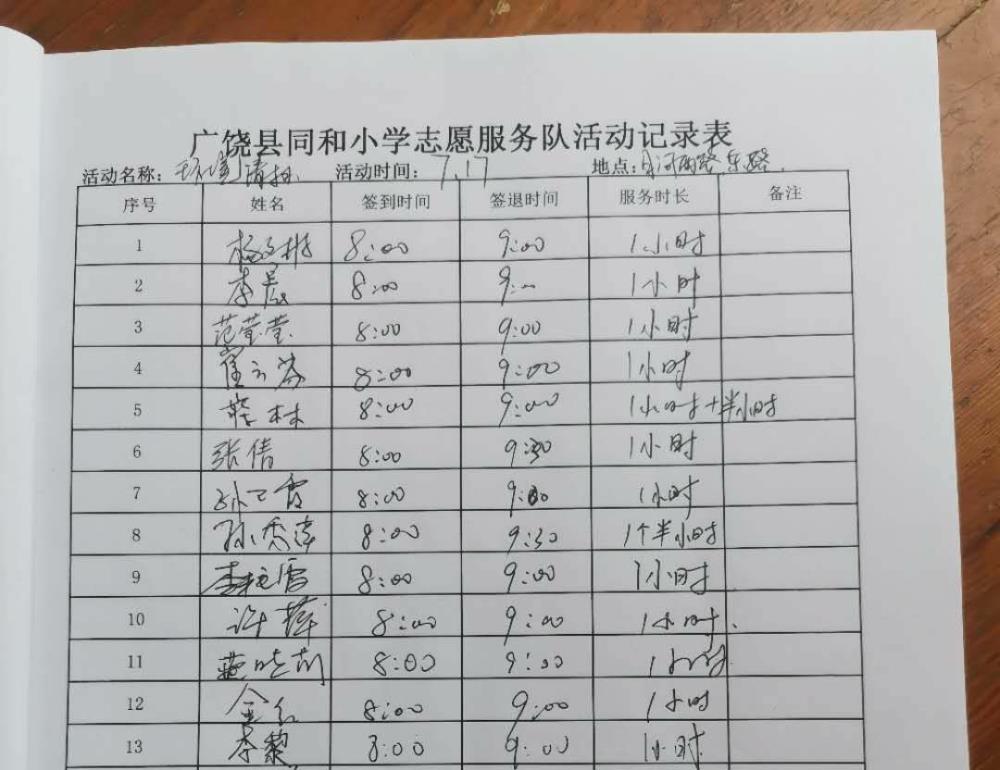 广饶县同和小学志愿服务队活动记录表
活动名称：环境清扫 活动时间：7.17 地点：月河 路
序号 姓名 签到时间 签退时间 服务时长 备注
1 杨 彬 8:00 9:00 1小时
2 李晨 8:00 9:00 1小时
3 范莹莹 8:00 9:00 1小时
4 8:00 9:00 1小时
5 林 8:00 9:00 1小时+半小时
6 张倩 8:00 9:30 1小时
7 孙 霞 8:00 1小时
8 孙秀萍 8:00 9:30 1个半小时
9 李 雷 8:00 9:00 1小时
10 许萍 8:00 9:00 1小时.
11 8:00 9:00 1小时
12 金红 8:00 9:00 1小时
13 李黎 8:00 9:00 1小时